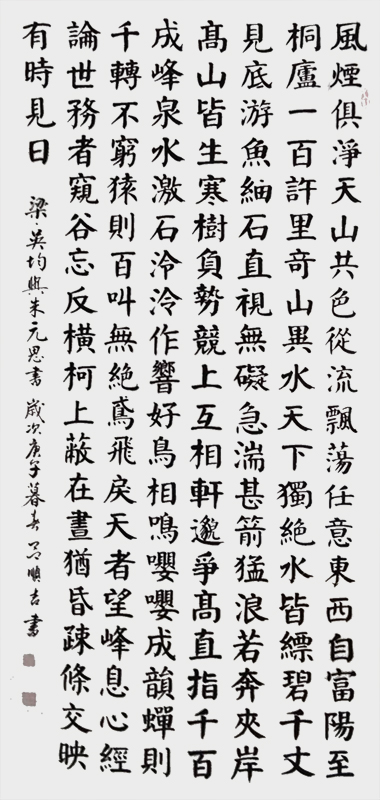 風煙俱淨天山共色從流飄蕩任意東西自富陽至
桐廬一百許里奇山異水天下獨絕水皆縹碧千丈
見底游魚細石直視無礙急湍甚箭猛浪若奔夾岸
髙山皆生寒樹負勢競上互相軒邈爭髙直指千百
成峰泉水激石泠泠作響好鳥相鳴嚶嚶成韻蟬則
千轉不窮猿則百叫無絕鳶飛戾天者望峰息心經
論世務者窺谷忘反橫柯上蔽在晝猶昏疎條交映
有時見日 梁·吳均與朱元思書 歲次庚午暮春 順吉書